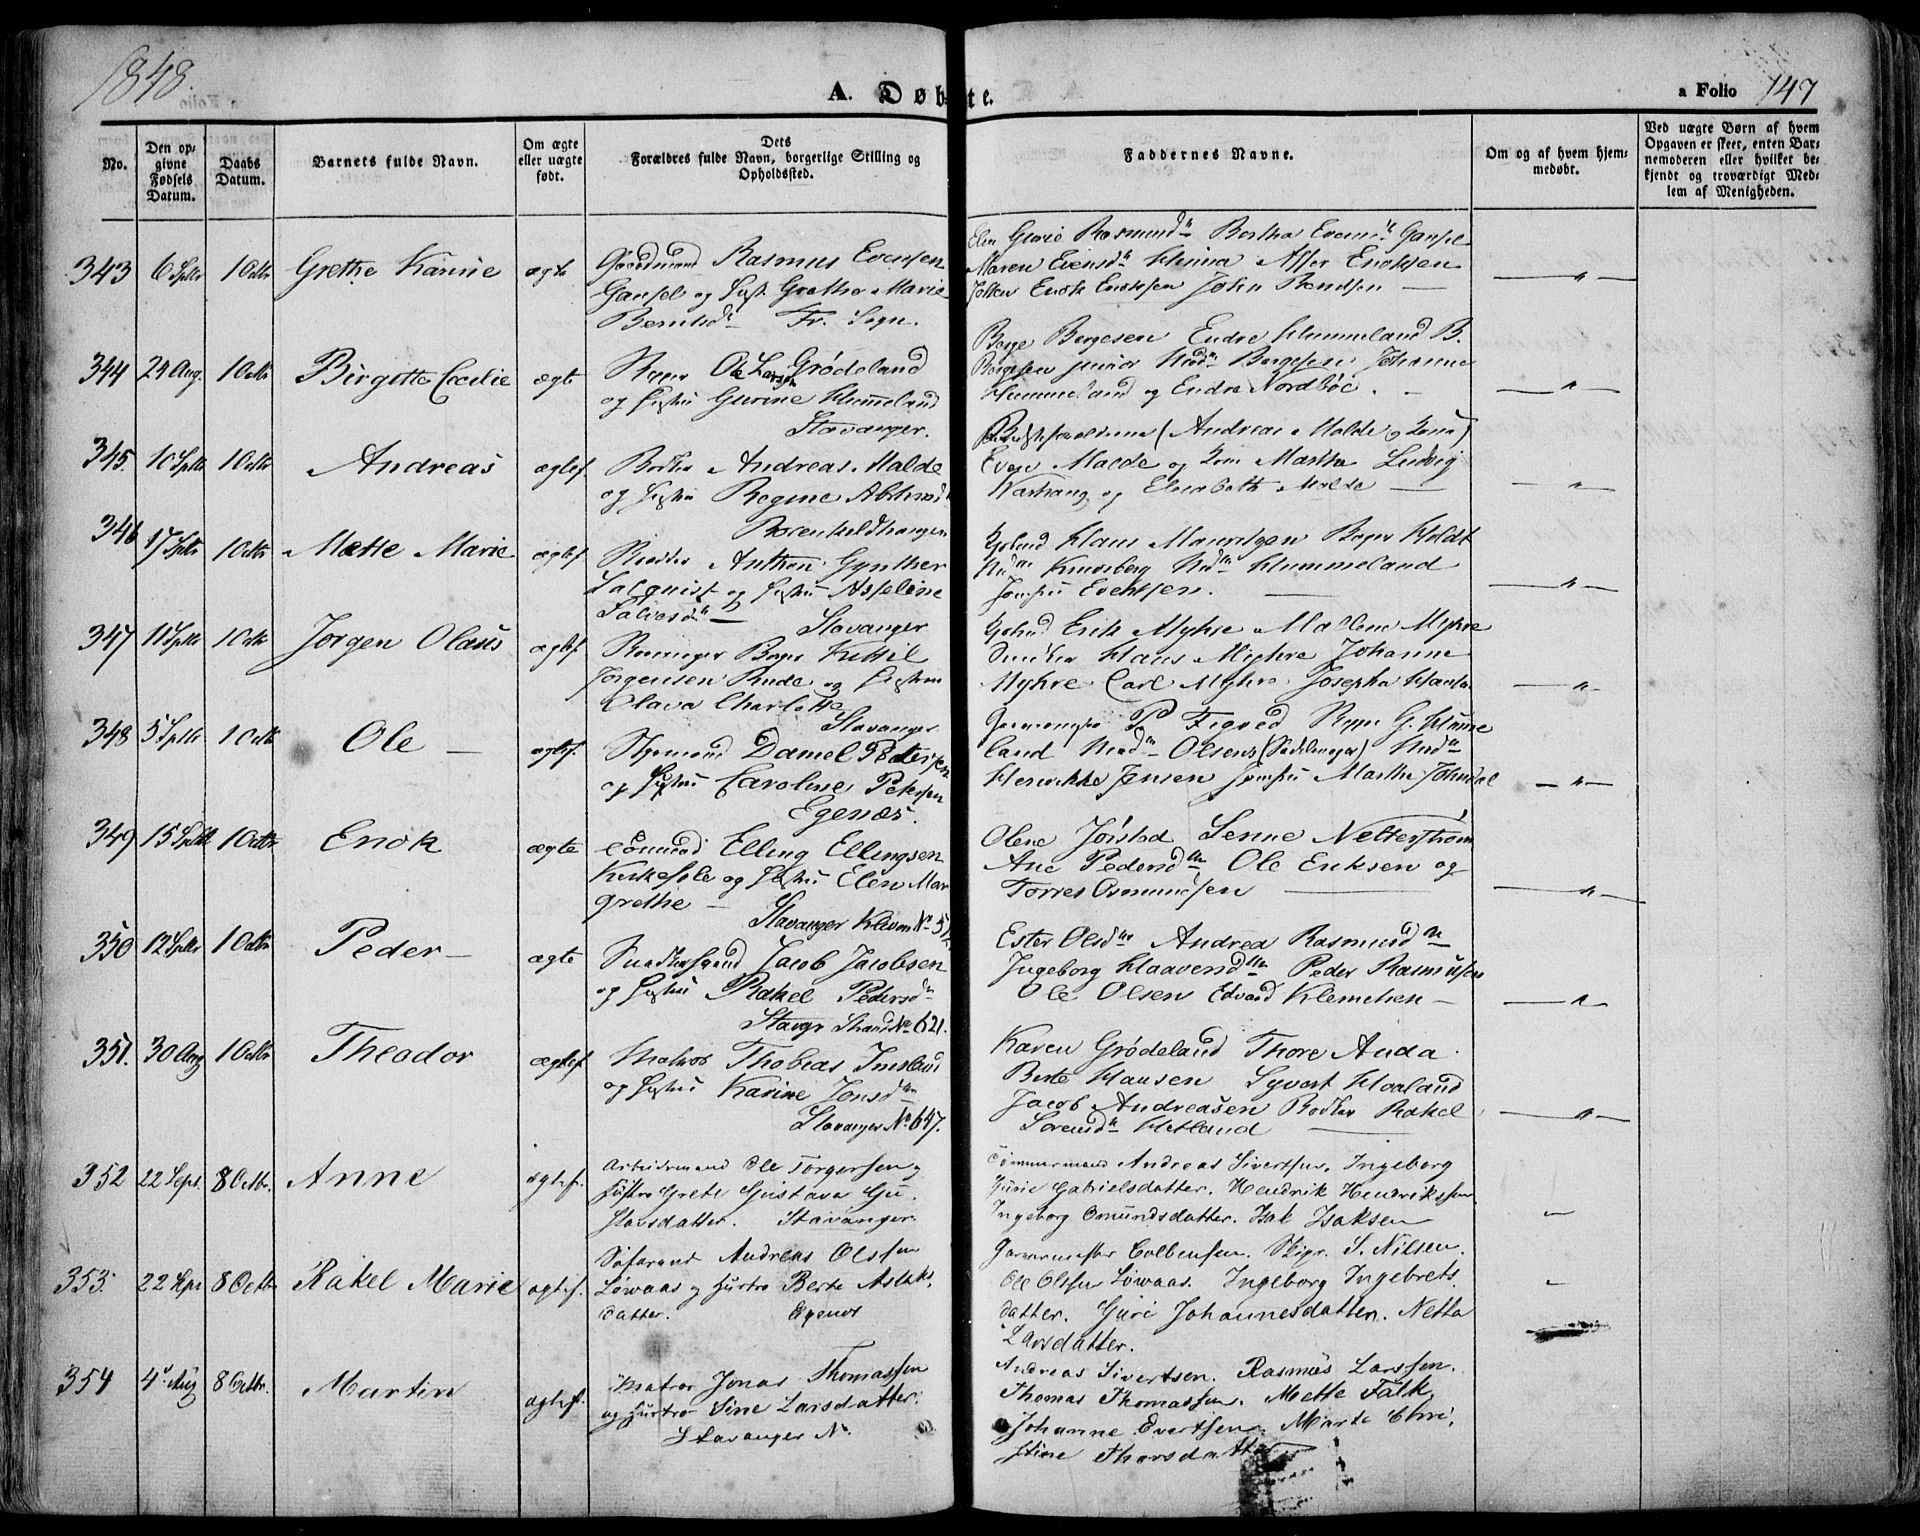 1848.
A. Døbte.
a Folio 147
No.
Den opgivne Fødsels Datum.
Daabs Datum.
Barnets fulde Navn.
Om ægte eller uægte født.
Dets Forældres fulde Navn, borgerlige Stilling og Opholdssted.
Faddernes Navne.
Om og af hvem hjemmedøbt.
Ved uægte Børn af hvem Opgaven er skeet, enten Barnemoderen eller hvilket bekjendt og troværdigt Medlem af Menigheden.
343 6 Septbr 1 Octbr Grethe Karine ægte
Gaardmand Rasmus Evensen
Gansel og Hust. Grethe Marie
Berntsdr Fr. Sogn.
Rasmusdr Bertha Evensdr Gansel
Maren Evensdr Hinna Asser Eriksen
Jotten Enok Enoksen John Bendsen
344 29 Aug. 1 Octbr Birgitte Cecilie ægte
Ole Larsen Grødeland
og Hustru Gurine Hummeland
Stavanger.
Børge Børgesen Endre Hummeland B.
Børgesen junior Mad. Børgesen Johanne
Hummeland og Endre Nordbøe.
345. 10 Septbr 1 Octbr Andreas ægtef.
Bødker Andreas Malde
og Hustru Regine
(Andreas Malde og Kone)
Even Malde og Kone Martha Ludvig
og Elisabeth Malde
346 17 Septbr 1 Octbr Mette Marie ægtef.
Anthon Gynther
og Hustru Asseline
Salvesdr Stavanger
Hans Mauritzen Holdt
Mad. Knudsberg Mad. Hummeland
Jomfru Evertsen.
347 11 Septbr 1 Octbr Jørgen Olaus ægtef.
Kittil
Jørgensen Rude og Hustru
Olava Charlotte
Stavanger
Erik Myhre Mallene Myhre
Snedker Hans Myhre Johanne
Myhre Carl Myhre Josepha
348 5 Septbr 1 Octbr Ole ægtef.
Styrmand Daniel Petersen
og Hustru Caroline Petersen
Egenæs.
P. Figved G. Hummeland
Madm Olsen (Sadelmager) Madm
Henrikke Jensen Jomfru Marthe
349 15 Septbr 1 Octbr Enok ægte
Elling Ellingsen
Kirkehole og Hustru Elen Margrethe
Stavanger Kleven No
Olene Jøistad Senne Netterstrøm
Ane Pedersdtr Ole Eriksen og
Torres Osmundsen
350 12 Septbr 1 Octbr Peder ægte
Snedkersvend Jacob Jacobsen
og Hustru Rakel Pedersdr
Stavgr Strand No 621.
Ester Olsdtr Andrea Rasmusdtr
Ingeborg Haavensdtr Peder Rasmusen
Ole Olsen Edvard Klemetsen
351. 30 Aug 1 Octbr Theodor ægtef.
Matros Thobias Imsland
og Hustru Karine Jonsdtr
Stavanger No 647.
Karen Grødeland Thore Anda.
Berte Hansen Syvert Haaland
Jacob Andreasen Bødker Rakel
Sørensdr Hetland
352 22 Sept. 8 Octbr. Anne ægtef.
Arbeidsmand Ole Torgersen og
Hustro Grete Gustava Gustavsdatter. Stavanger.
Tømmermand Andreas Sivertsen, Ingeborg
Gurie Gabrielsdatter. Hendrik Hendriksen
Ingeborg Omundsdatter. Isak Isaksen
353. 22 Sept 8 Octbr Rakel Marie ægtef.
Søfarend Andreas Olsen
Løwaas og Hustro Berte Aslaksdatter. Egenes
Garvermester Colbensen. Skipr. S. Nilsen.
Ole Olsen Løwaas. Ingeborg Ingebretsdatter. Guri Johannesdatter. Netta
Larsdatter.
354 4 Aug 8 Octbr. Martin ægtef.
Matros Jonas Thomassen
og Hustro Sine Larsdatter.
Stavanger No.
Andreas Sivertsen. Rasmus Larsen.
Thomas Thomassen. Mette Falk,
Johanne Evertsen, Marte Christine Thorsdatter